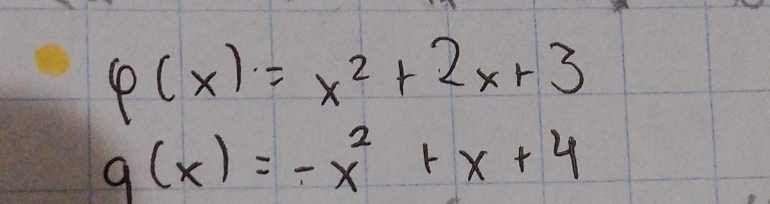 φ(x) = x² + 2x + 3
q(x) = -x² + x + 4